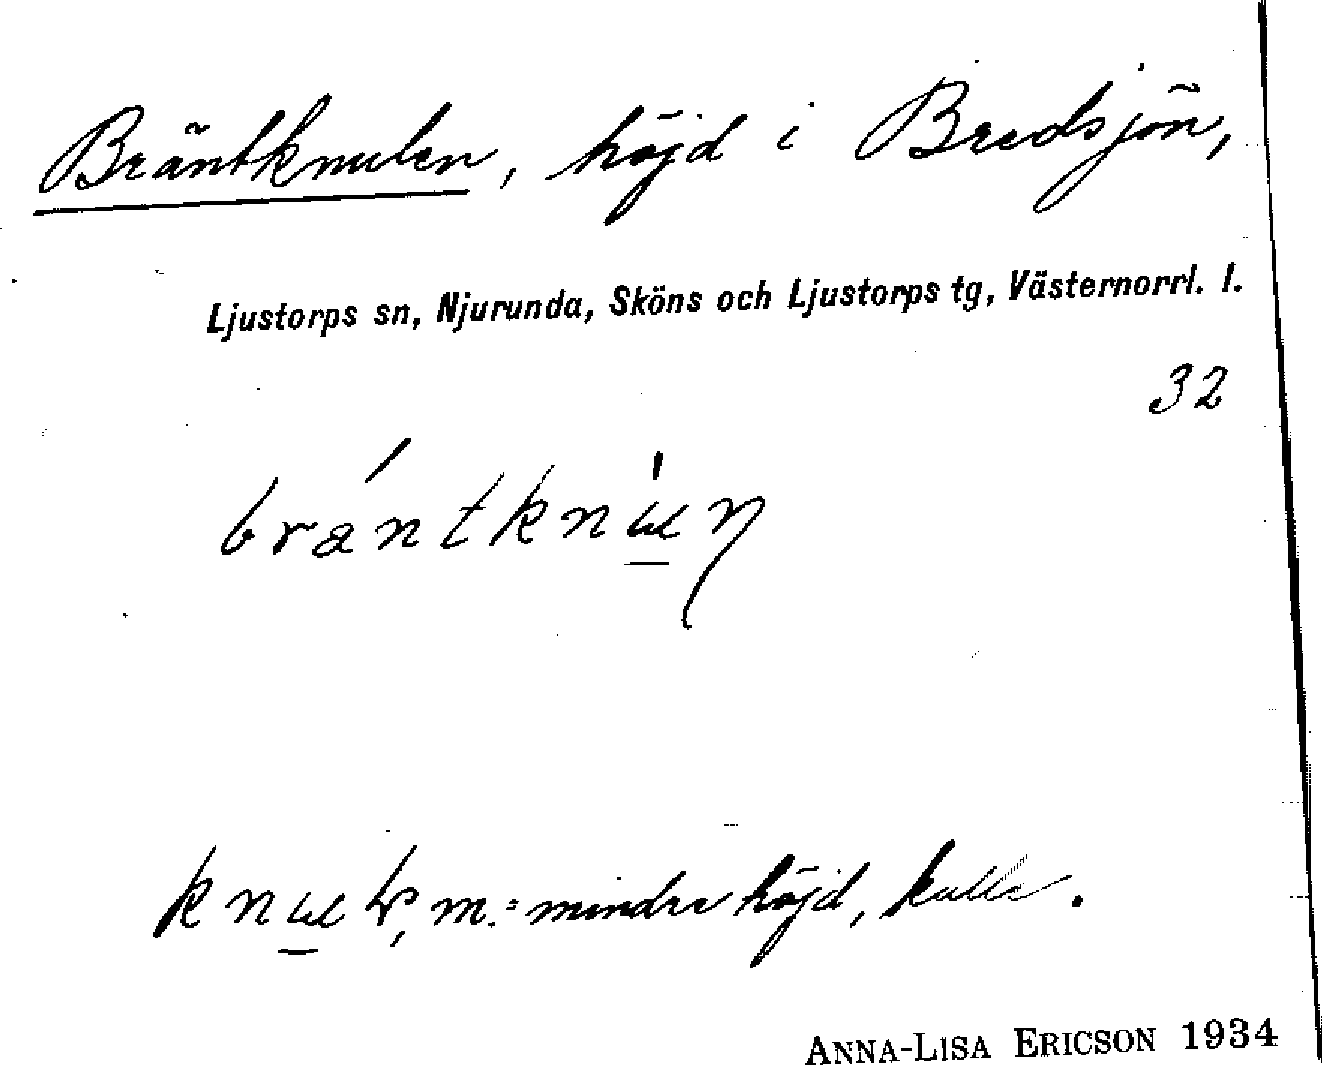 Bräntknulen, höjd i Bredsjön,
Ljustorps sn, Njurunda, Sköns och Ljustorps tg, Västernorrl. l.
32
m. = mindre höjd, kulle.
ANNA-LISA ERICSON 1934